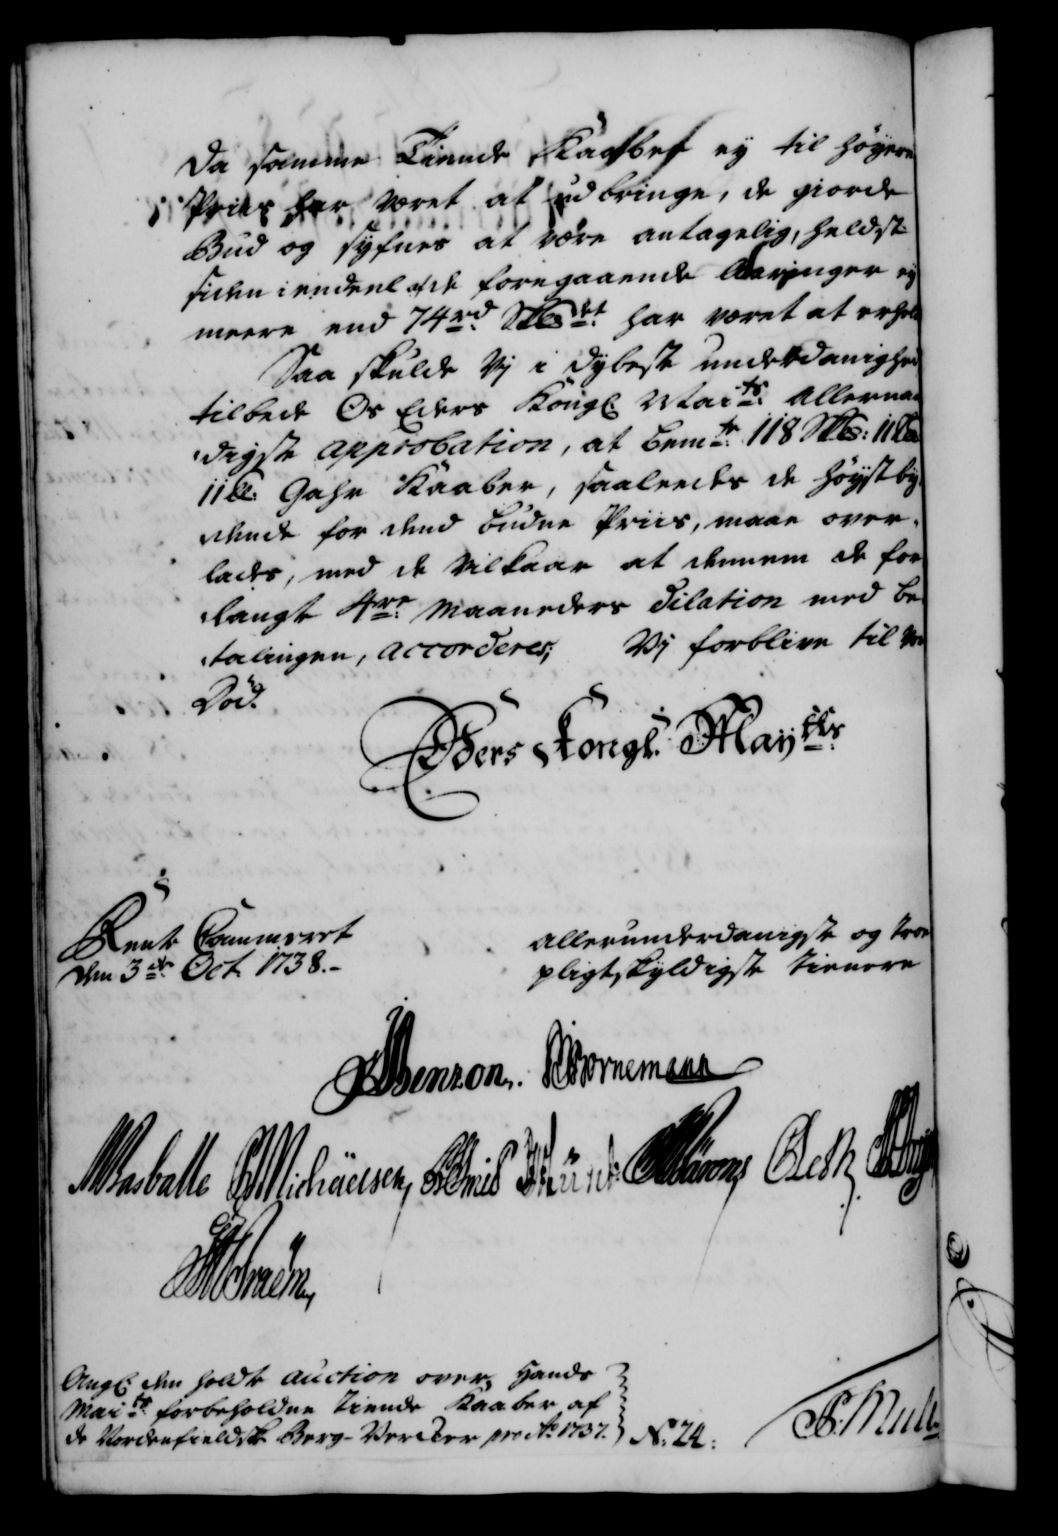 Da samme Tiende Kaaber ey til höyere
Priis har været at udbringe, de giorde
Bud og syfnes at være antagelig, heldst
siden i endeel af de foregaaende Aaringer ey
meere end 74 rd Skb det har været at erhol
Saa skulde Vj i dybeste underdanighed
tilbede Os Eders Kongl Maits Allernaa
digste approbation, at bemte 118 Skb: 11
11 Gahr Kaaber, saaledes de höystby,
dende for dend budne Priis, maae over-
lades, med de Vilkaar at dennem de for
langte 4re Maaneders dilation med be
talingen, accorderes; Vj forblive til vor
Död.
Eders Kongl. Mayts
Rente Cammeret
den 3de Oct. 1738.-
allerunderdanigste og troe
pligtskyldigste tienere
Benzon. Bornemann
Wasballe Michäelsen
Angl den holdte Auction over Hands
Maits forbeholdne tiende Kaaber af
de Nordenfieldske Berg-Vercker pro Ao 1737.
N. 24.